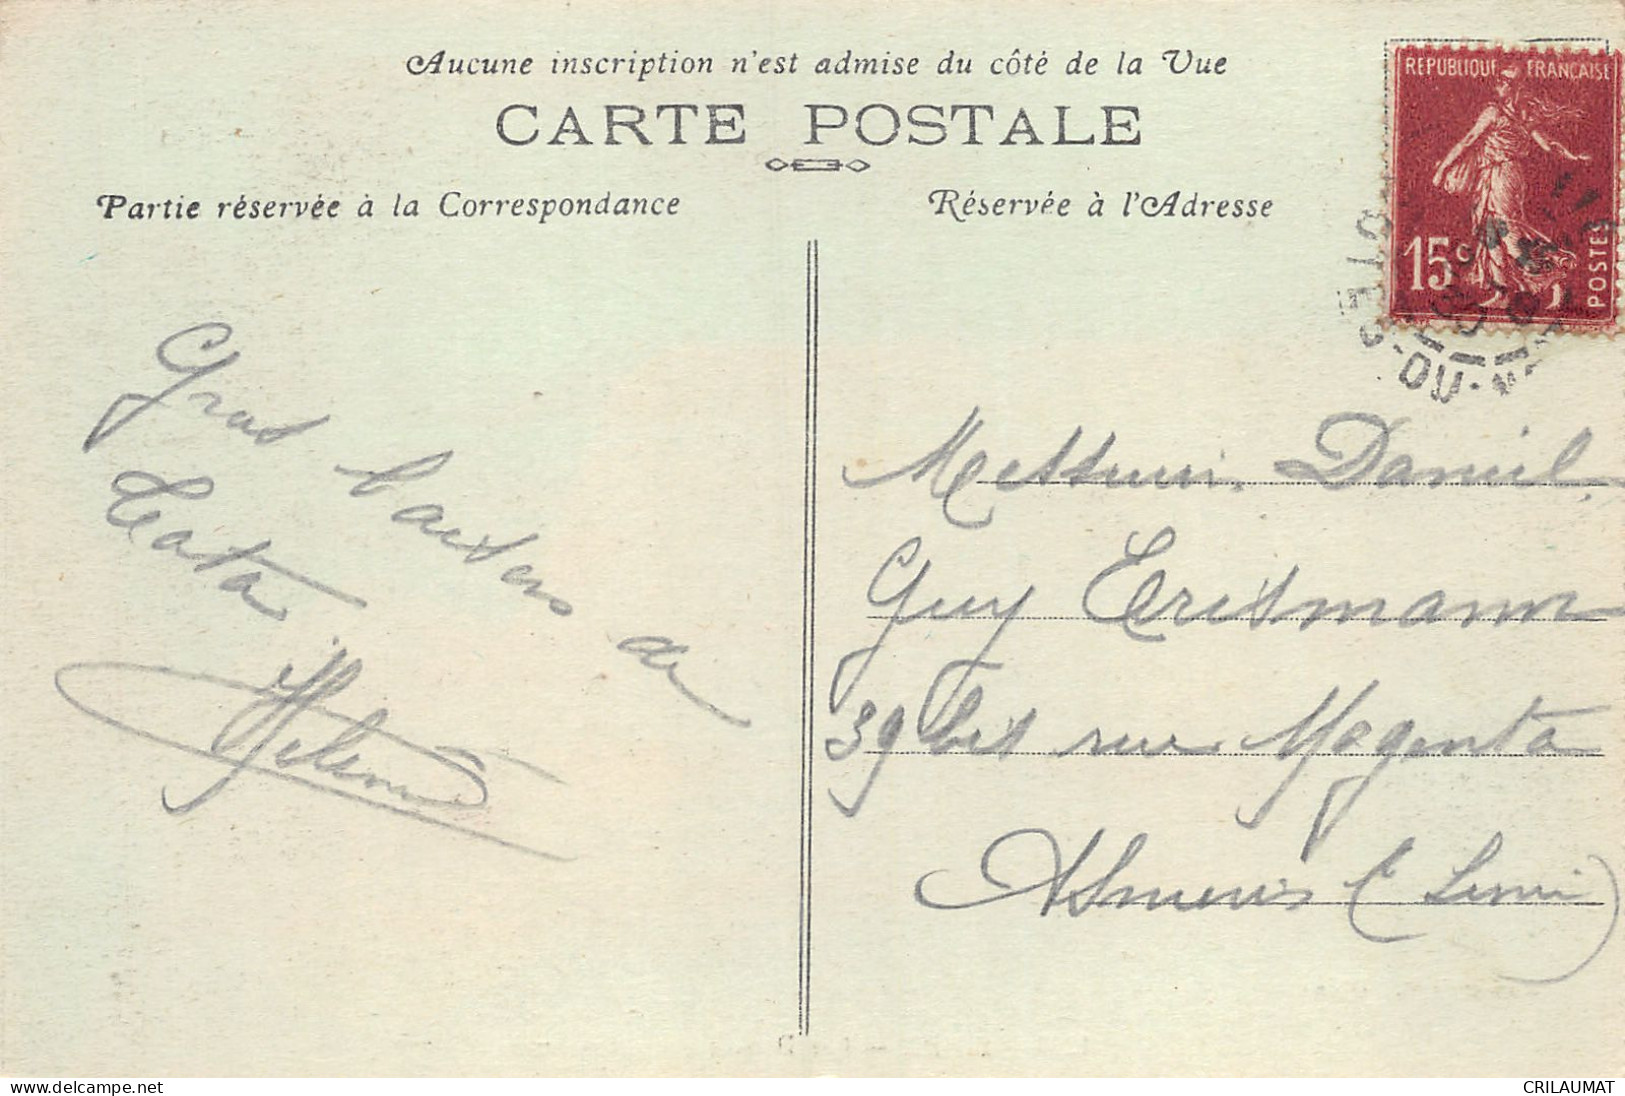 Aucune inscription n'est admise du côté de la Vue
CARTE POSTALE
Partie réservée à la Correspondance
Réservée à l'Adresse
REPUBLIQUE FRANÇAISE
15c
POSTES
Gros de
Tata
Messieurs Daniel
Guy Erismann
39 bis rue Magenta
Asnieres (Seine)
www.delcampe.net
CRILAUMAT